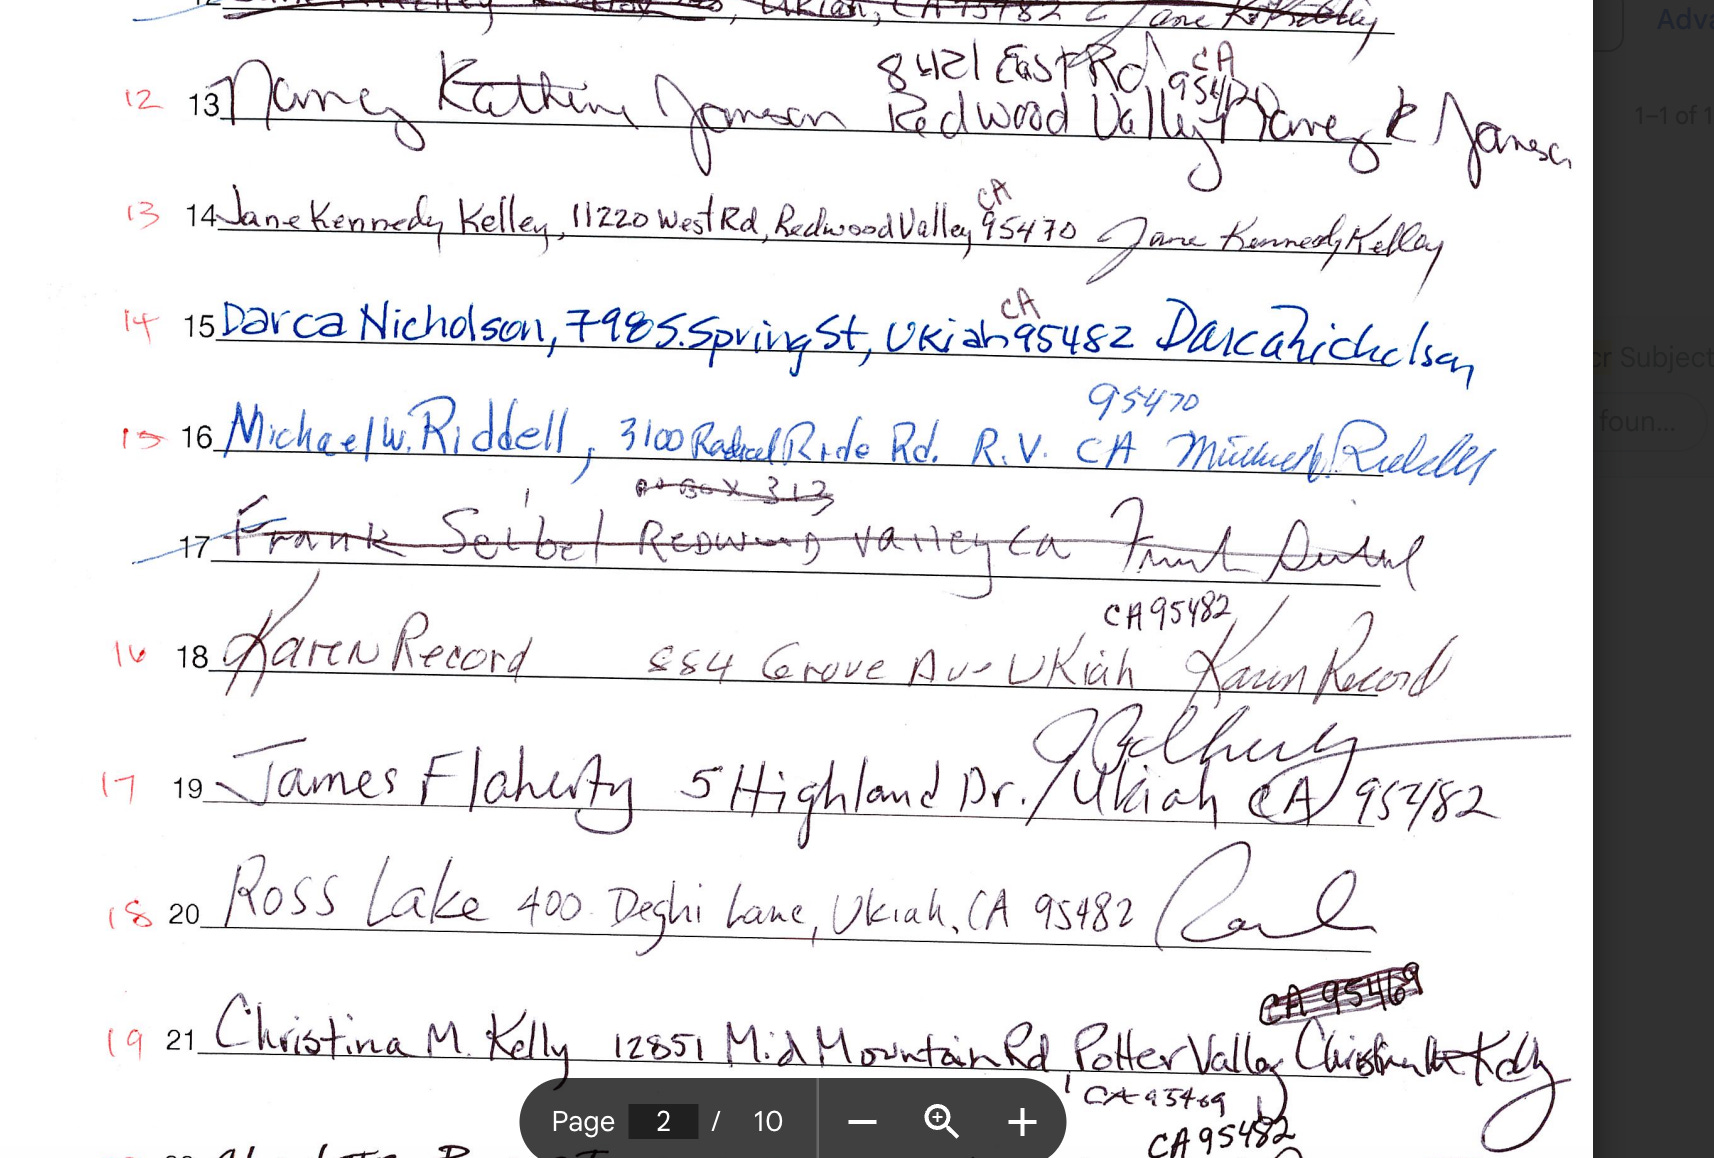 Ukiah, CA 95482 Jane K. Kelley
12 13 Nancy Kathine Jameson 8421 East Rd, Redwood Valley CA 95470 Nancy K Jameson
13 14 Jane Kennedy Kelley, 11220 West Rd, Redwood Valley, CA 95470 Jane Kennedy Kelley
14 15 Darca Nicholson, 798 S. Spring St, Ukiah CA 95482 Darca Nicholson
95470
15 16 Michael W. Riddell, 3100 Road Rd. R.V. CA
PO Box 313
17 Frank Seibel Redwood Valley Ca Frank Seibel
CA 95482
16 18 Karen Record 884 Grove Ave Ukiah Karen Record
17 19 James Flaherty 5 Highland Dr. / Ukiah CA 95482
18 20 Ross Lake 400 Deghi Lane, Ukiah, CA 95482
CA 95469
19 21 Christina M. Kelly 12851 Mid Mountain Rd Potter Valley Christina M Kelly
CA 95469
CA 95482
Page 2 / 10
Adva
1–1 of 1
or Subject
foun...